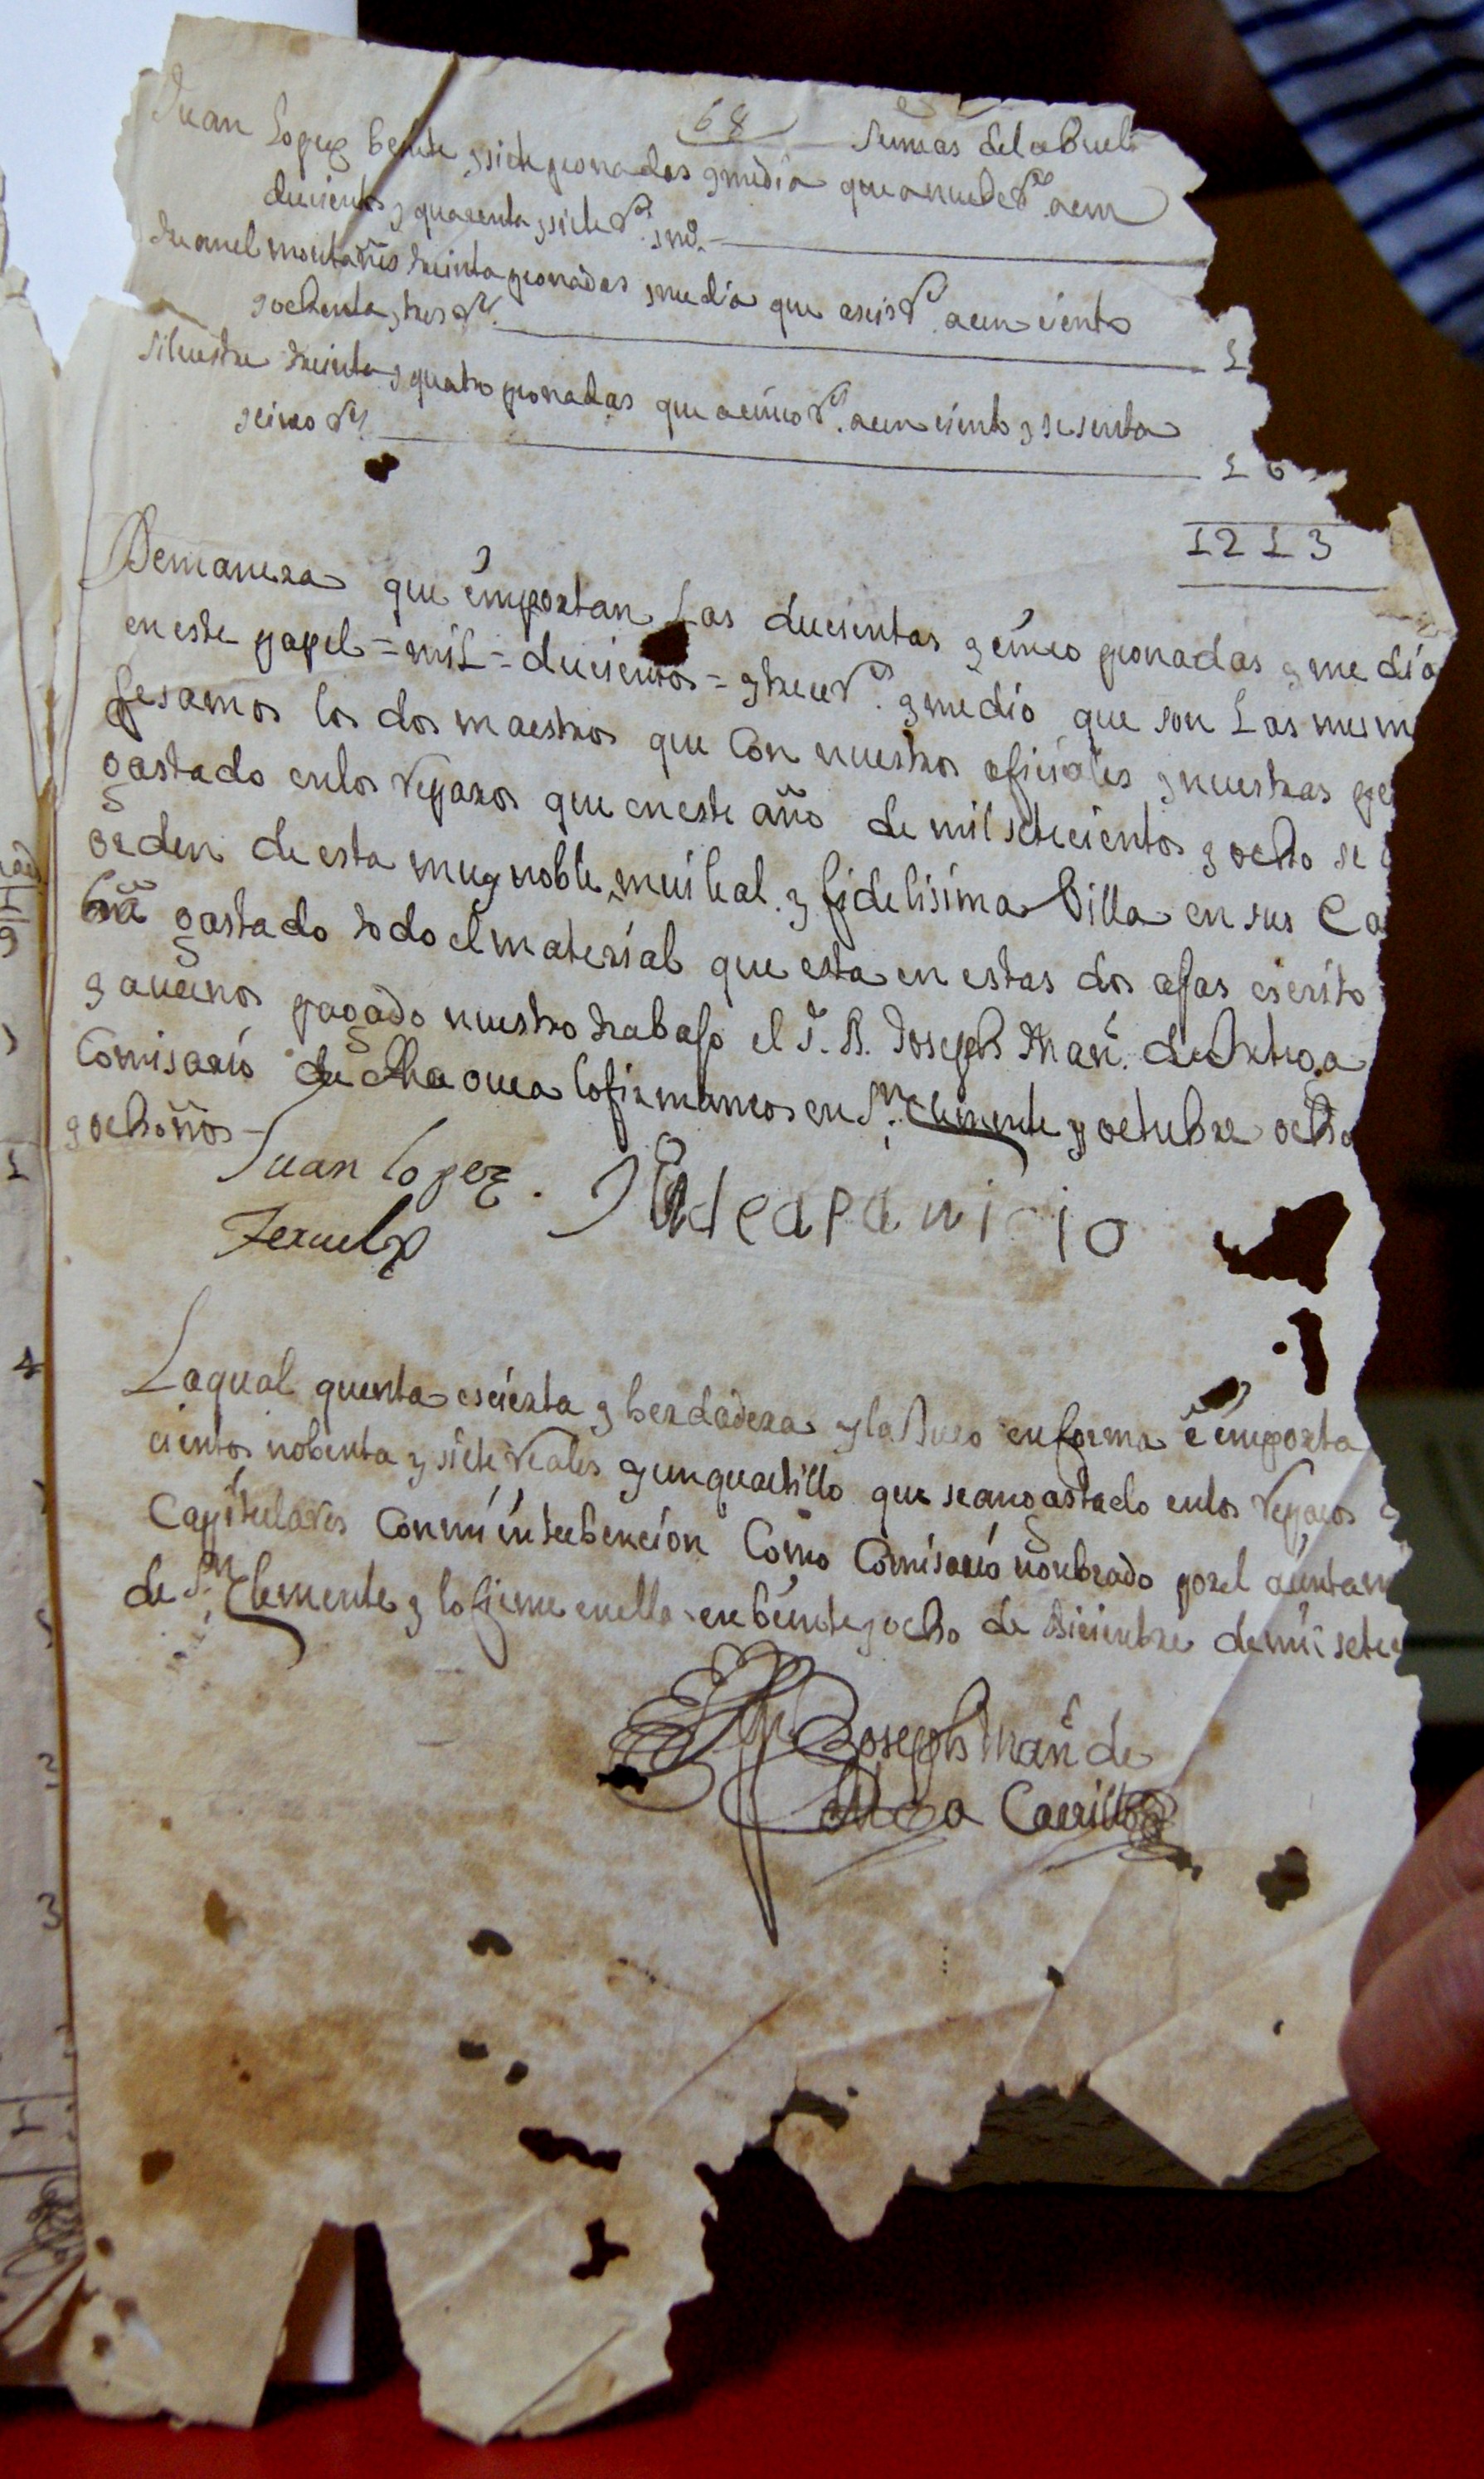 68 sumas de la Buel
Juan Lopez beinte y siete peonadas y media que a nuebe Rs. a en
ducientos y quarenta y siete Rs. y mo.
Juan el montañes treinta peonadas y media que a seis Rs. a en ciento
y ochenta y tres Rs. 1
silvestre treinta y quatro peonadas que a cinco Rs. a en ciento y sesenta
y cinco Rs. 1 6
1213
Demanera que importan Las ducientas y cinco peonadas y media
en este papel = mil = ducientos = y trece Rs. y medio que son Las mesm
fesamos los dos maestros que Con nuestros ofiziales y nuestras pe
gastado en los Reparos que en este año de mil setecientos y ocho se
orden de esta muy noble, mui leal. y fidelisima Villa en sus Ca
gastado todo el material que esta en estas dos ojas escrito
y auernos pagado nuestro trabajo el S. D. Joseph Man. de Ortega
Comisario de dha o lo firmamos en Sn. Clemente y octubre ocho
y ocho años
Juan lopez.
Teruel
de aparicio
La qual quenta es cierta y berdadera y la Juro en forma e importa
cientos nobenta y siete Reales y un quartillo que se an gastado en los Reparos
Capitulares Con mi interbencion Como Comisario nonbrado por el aiuntam
de Sn. Clemente y lo firme en ella en beinte y ocho de Diciembre de mil sete
Joseph Man de
Carrillo